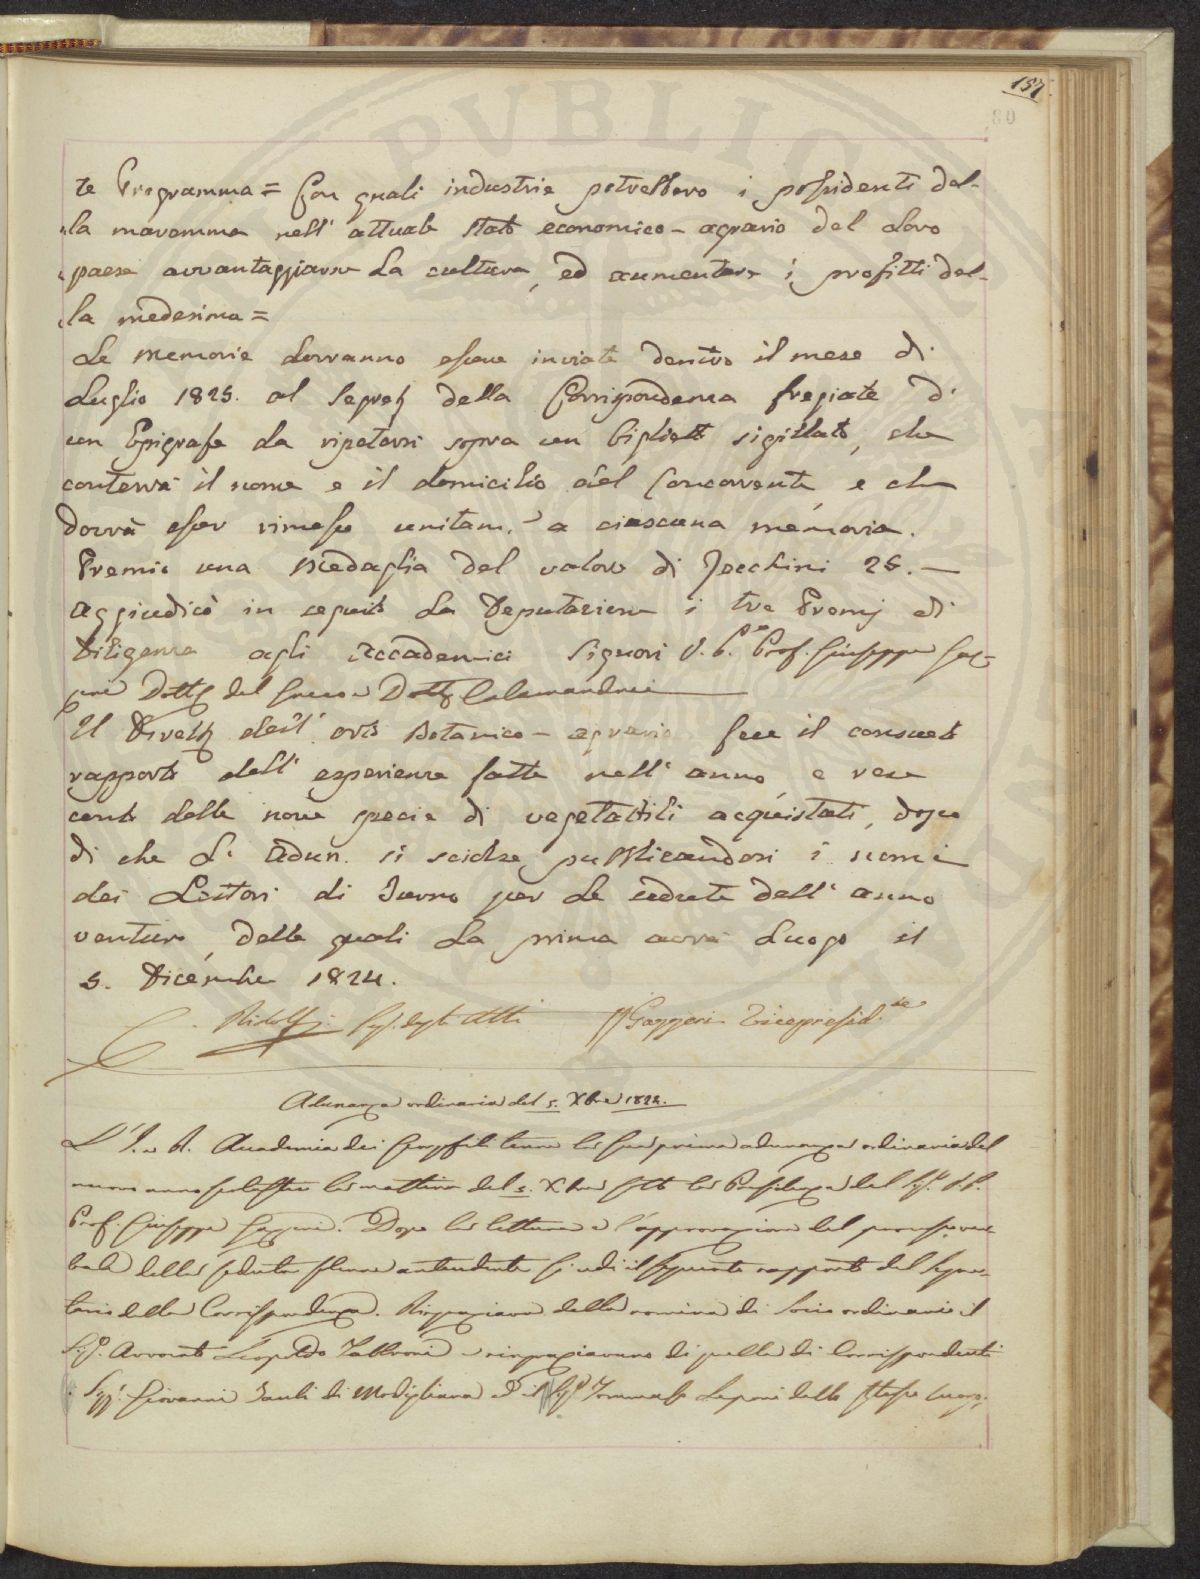 157
80
te Programma = Con quali industrie potrebbero i possidenti del-
la maremma nell' attuale stato economico-agrario del loro
paese avvantaggiarne la cultura, ed aumentare i profitti del-
la medesima =
Le memorie dovranno essere inviate dentro il mese di
Luglio 1825. al Segret della Corrispondenza fregiate d'
un Epigrafe da ripetersi sopra un biglietto sigillato, che
conterrà il nome e il domicilio del Concorrente, e che
dovrà esser rimesso unitam.e a ciascuna memoria.
Premio una Medaglia del valore di Zecchini 25. —
Aggiudicò in seguito la Deputazione i tre Premj di
Diligenza agli Accademici Signori V. P.e Prof. Giuseppe Gaz-
zeri Dott del Greco e Dott Calamandrei
Il Dirett dell' orto Botanico-agrario fece il consueto
rapporto dell' esperienze fatte nell' anno, e rese
conto delle nove specie di vegetabili acquistati, dopo
di che l' Adun. si sciolse pubblicandosi i nomi
dei Lettori di Turno per le sedute dell' anno
venturo, delle quali la prima avrà luogo il
5. Dicembre 1824.
C. Ridolfi Seg. degli Atti G Gazzeri Vicepresid.te
Adunanza ordinaria del 5. Xbre 1824.
L' I. e R. Accademia dei Georgofili tenne la sua prima adunanza ordinaria del
nuovo anno la mattina del 5. Xbre sotto la Presidenza del Sig.r V. P.
Prof. Giuseppe Gazzeri. Dopo la lettura e l'approvazione del processo ver-
bale della seduta antecedente si udì il seguente rapporto del Segre-
tario della Corrispondenza. Ringraziava della nomina di Socio ordinario il
Sig.r Avvocato Leopoldo Fabbroni e ringraziavano di quella di Corrispondenti
i Sigg.i Giovanni di Modigliana ed il Sig.r Tommaso dello stesso luogo;